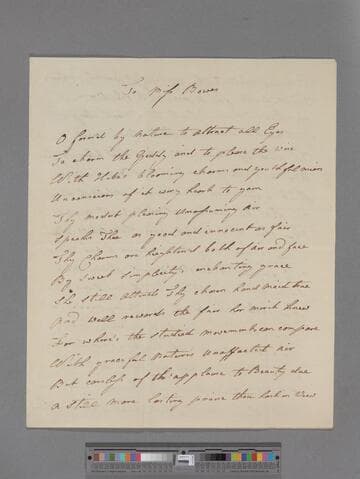 To Miss Bowes
O form'd by nature to attract all Eyes
To charm the Giddy and to please the wise
With Hebe's blooming charms and youthful mien
Unconscious of it ev'ry heart to gain
Thy modest pleasing Unassuming Air
Speaks Thee as good and innocent as fair
Thy Charms are heighten'd both of air and face
By Sweet Simplicity's enchanting grace
She still attends Thy charms
And well rewards the fair
For where's the studied movement can compare
With graceful Nature's Unaffected air
But careless of the applause to Beauty due
A Still more lasting praise thou hast in View